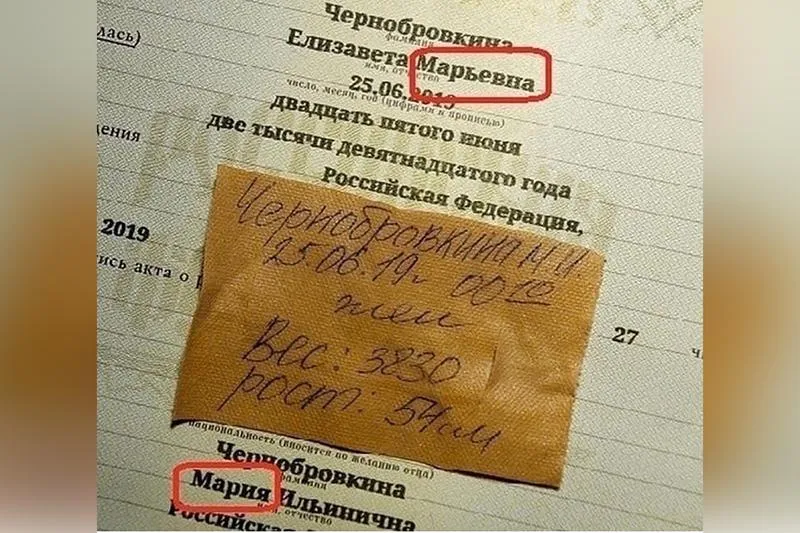 лась)
Чернобровкина
фамилия
Елизавета Марьевна
имя, отчество
25.06.2019
число, месяц, год (цифрами и прописью)
двадцать пятого июня
две тысячи девятнадцатого года
ения
Российская Федерация,
2019
ись акта о р
Чернобровкина М.И.
25.06.19г 00 10
жен
Вес: 3830
рост: 54см
27
ч
национальность (вносится по желанию отца)
Чернобровкина
фамилия
Мария Ильинична
имя, отчество
Российская